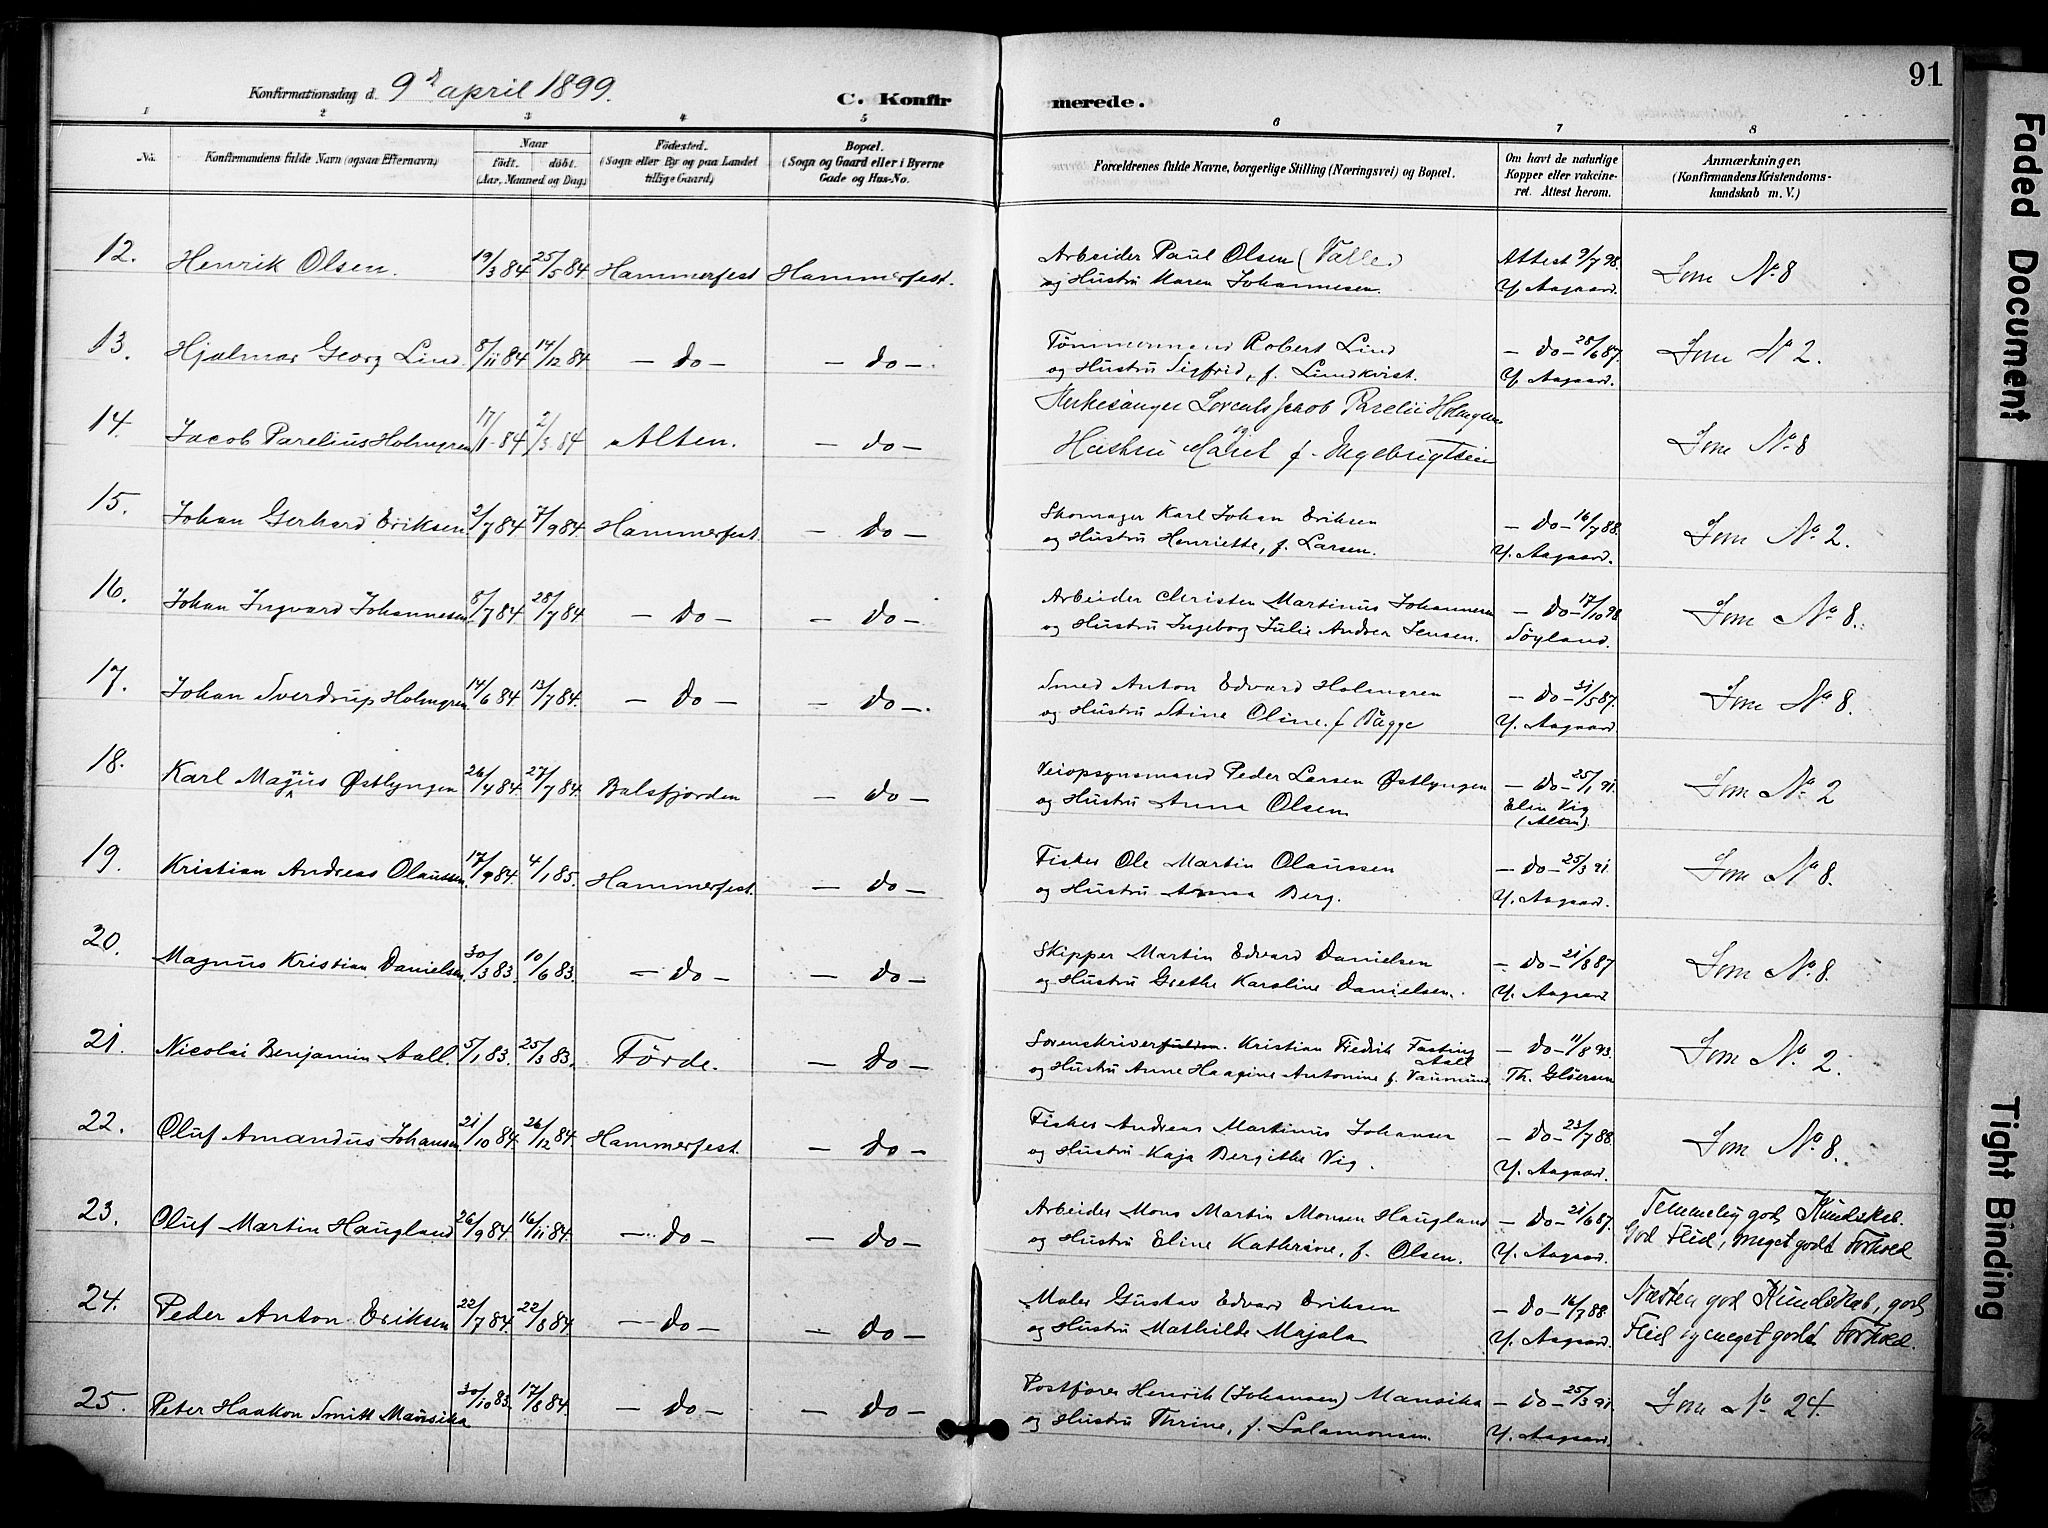 91
Konfirmationsdag d. 9d april 1899.
C. Konfirmerede.
1 2 3 4 5 6 7 8
No. Konfirmandens fulde Navn (ogsaa Efternavn). Naar født. døbt. (Aar, Maaned og Dag.) Fødested. (Sogn eller By og paa Landet tillige Gaard.) Bopæl. (Sogn og Gaard eller i Byerne Gade og Hus-No. Forældrenes fulde Navne, borgerlige Stilling (Næringsvei) og Bopæl. Om havt de naturlige Kopper eller vakcineret. Attest herom. Anmærkninger, (Konfirmandens Kristendomskundskab m. V.)
12. Henrik Olsen. 19/3 84 25/5 84 Hammerfest Hammerfest. Arbeider Paul Olsen (Valle.) Attest 9/7 98. Som No. 8
og Hustru Maren Johannesen. Y. Aagaard.
13. Hjalmar Georg Lind. 8/11 84 14/12 84 — do — — do — Tømmermand Robert Lind — do — 28/6 87. Som No 2.
og Hustru Sigfrid, f. Lundkvist. Y. Aagaard.
14. Jacob Parelius Holmgren 17/1 84 2/3 84 Alten. — do — Kirkesanger Jacob Parelii Holmgren Som No. 8
og Hustru Maret f. Ingebrigtsen
15. Johan Gerhard Eriksen. 2/7 84 7/9 84. Hammerfest. — do — Skomager Karl Johan Eriksen — do — 16/7 88. Som No 2.
og Hustru Henriette, f. Larsen. Y. Aagaard.
16. Johan Ingvard Johannesen 8/7 84 28/7 84 — do — — do — Arbeider Christen Martinus Johannesen — do — 17/10 98. Som No 8.
og Hustru Ingeborg Julie Andrea Jensen. Søyland.
17. Johan Sverdrup Holmgren. 14/6 84 13/7 84. — do — — do —. Smed Anton Edvard Holmgren — do — 31/5 87. Som No 8.
og Hustru Stine Oline. f Bagge Y. Aagaard
18. Karl Magnus Østlyngen 26/4 84. 27/7 84. Balsfjorden — do — Veiopsynsmand Peder Larsen Østlyngen — do — 25/1 91. Som No. 2
og Hustru Anna Olsen Elin Vig (Alten).
19. Kristian Andreas Olaussen. 17/9 84. 4/1 85. Hammerfest. — do — Fisker Ole Martin Olaussen — do — 25/3 91. Som No 8.
og Hustru Anna Berg. Y. Aagaard.
20. Magnus Kristian Danielsen. 30/3 83. 10/6 83. — do — — do — Skipper Martin Edvard Danielsen — do — 21/8 87 Som No. 8.
og Hustru Grethe Karoline Danielsen. Y. Aagaard
21. Nicolai Benjamin Aall. 5/1 83. 25/3 83. Førde. — do — Sorenskriverfuldm. Kristian Fredrik Fasting Aall — do — 11/8 93. Som No 2.
og Hustru Anne Haagine Antonine f. Vaumund. Th. Gløersen
22. Oluf Amandus Johansen 21/10 84. 26/12 84. Hammerfest. — do — Fisker Andreas Martinus Johansen — do — 23/7 88. Som No 8.
og Hustru Kaja Bergithe Vig. Y. Aagaard.
23. Oluf Martin Haugland 26/9 84 16/11 84 — do — — do — Arbeider Mons Martin Monsen Haugland — do — 21/6 87. Temmelig god Kundskab.
og Hustru Eline Kathrine, f. Olsen. Y. Aagaard. God Flid, meget godt Forhold
24. Peder Anton Eriksen 22/7 84. 22/8 84 — do — — do — Maler Gustav Edvard Eriksen — do — 16/7 88. Næsten god Kundskab, god
og Hustru Mathilde Majala Y. Aagaard. Flid og meget godt Forhold.
25. Peter Haakon Smitt Mansika 30/10 83. 17/8 84. — do — — do — Postfører Henrik (Johansen) Mansika — do — 25/3 91. Som No 24.
og Hustru Thrine, f. Salamonsen. Y. Aagaard.
Faded Document
Tight Binding